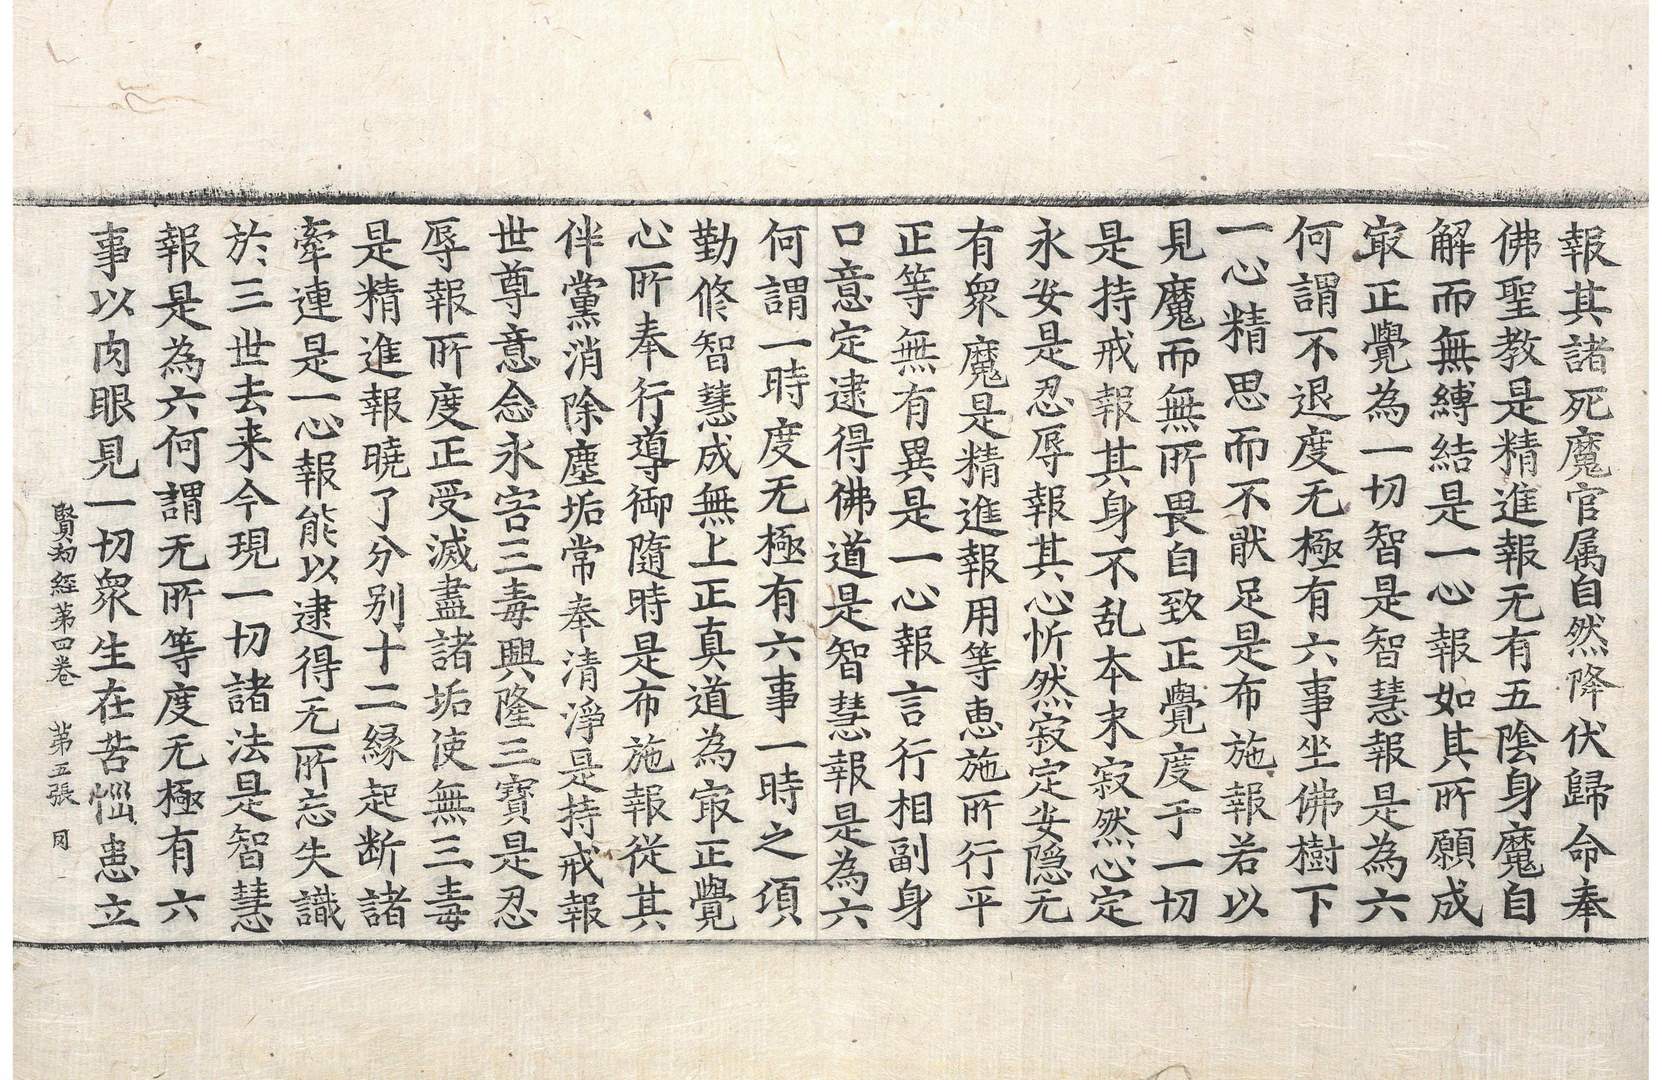 報其諸死魔官属自然降伏歸命奉
佛聖教是精進報无有五陰身魔自
解而無縛結是一心報如其所願成
㝡正覺為一切智是智慧報是為六
何謂不退度无極有六事坐佛樹下
一心精思而不猒足是布施報若以
見魔而無所畏自致正覺度于一切
是持戒報其身不乱本末寂然心定
永安是忍辱報其心忻然寂定安隠无
有衆魔是精進報用等恵施所行平
正等無有異是一心報言行相副身
口意定逮得佛道是智慧報是為六
何謂一時度无極有六事一時之湏
勤修智慧成無上正真道為㝡正覺
心所奉行導御隨時是布施報從其
伴黨消除塵垢常奉清淨是持戒報
世尊意念永害三毒興隆三寶是忍
辱報所度正受滅盡諸垢使無三毒
是精進報曉了分別十二縁起断諸
牽連是一心報能以逮得无所忘失識
於三世去来今現一切諸法是智慧
報是為六何謂无所等度无極有六
事以肉眼見一切衆生在苦惱患立
賢劫經第四卷 第五張 罔